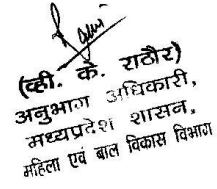 (व्ही. के. राठौर)
अनुभाग अधिकारी,
मध्यप्रदेश शासन,
महिला एवं बाल विकास विभाग